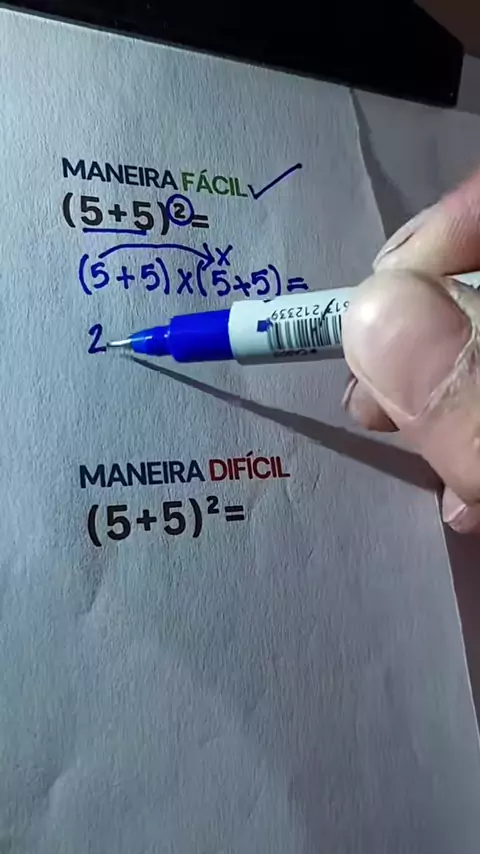 MANEIRA FÁCIL✓
(5+5)²=
(5+5)x(5+5)=
x
2
517 212339
MANEIRA DIFÍCIL
(5+5)²=